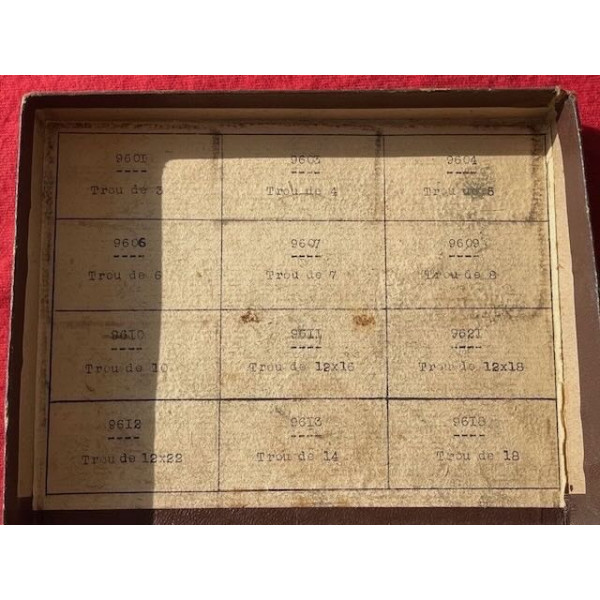 9601 9603 9604
---- ---- ----
Trou de 3 Trou de 4 Trou de 5
9606 9607 9609
---- ---- ----
Trou de 6 Trou de 7 Trou de 8
9610 9611 9621
---- ---- ----
Trou de 10 Trou de 12x16 Trou de 12x18
9612 9613 9618
---- ---- ----
Trou de 12x22 Trou de 14 Trou de 18